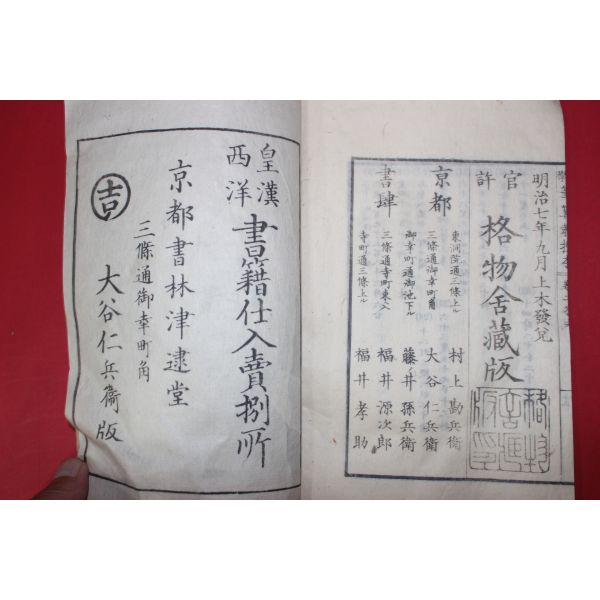 明治七年九月上木發兌
官許
格物舍藏版
京都書肆
東洞院通三條上ル 村上勘兵衛
三條通御幸町角 大谷仁兵衛
御幸町通御池下ル 藤井孫兵衛
三條通寺町東入 福井源次郎
寺町通三條上ル 福井孝助
皇漢西洋
書籍仕入賣捌所
京都書林津逮堂
三條通御幸町角
大谷仁兵衛版
吉